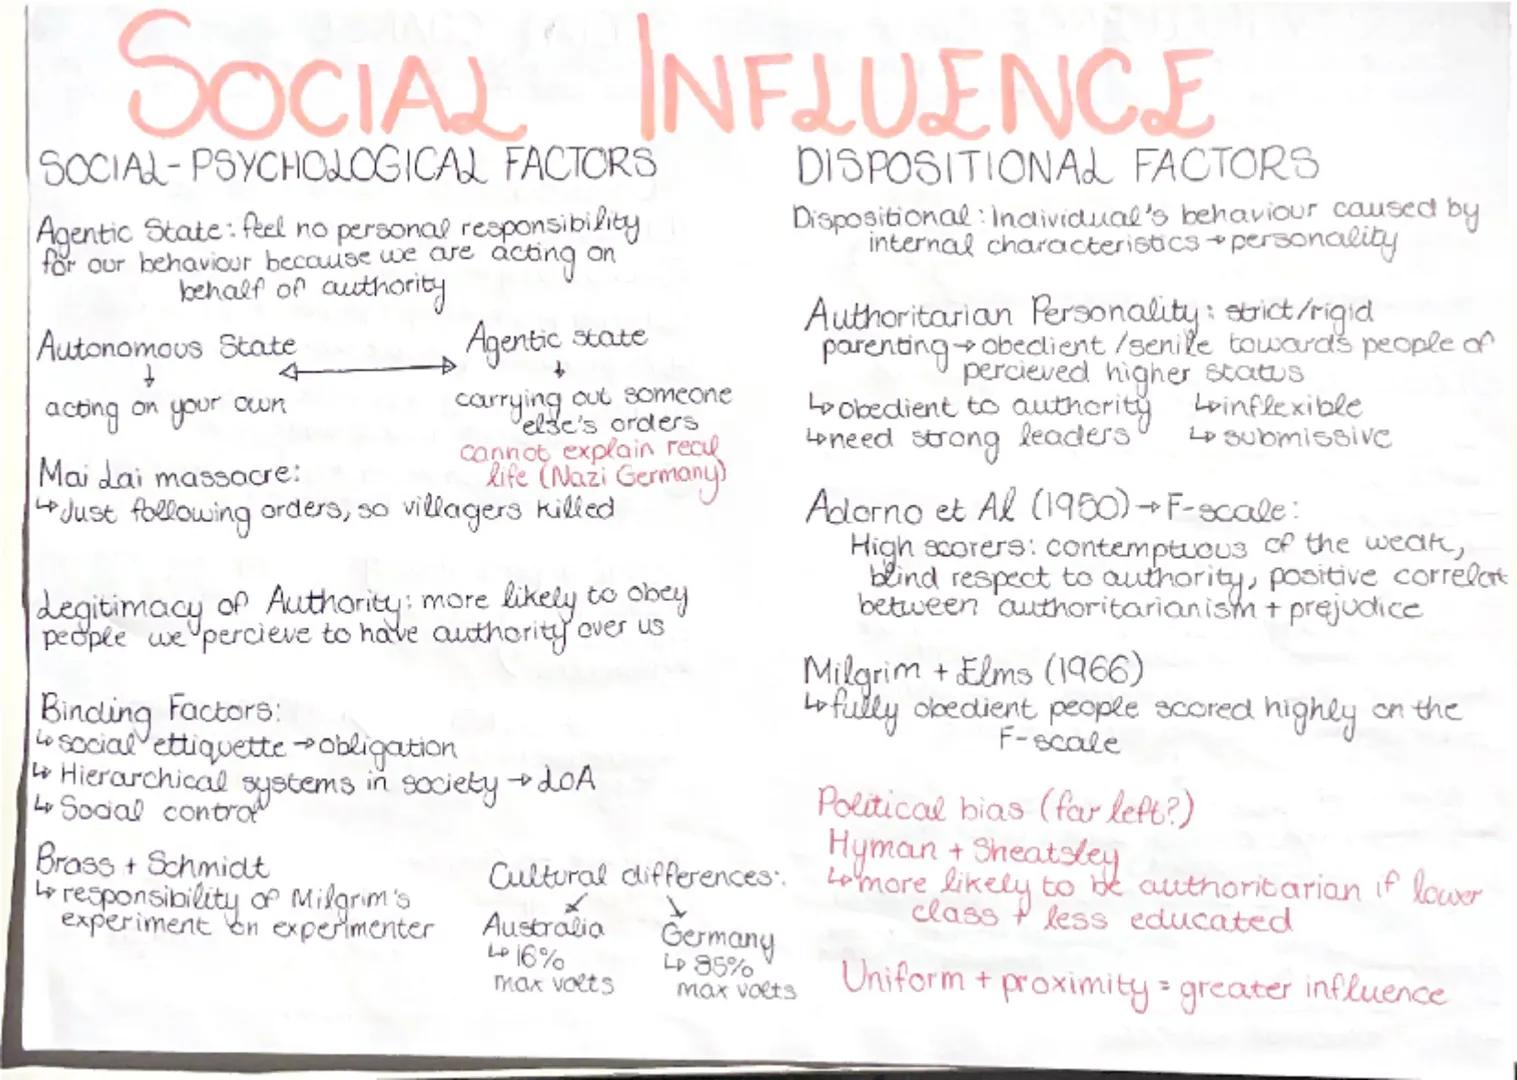 SOCIAL INFLUENCE
SOCIAL-PSYCHOLOGICAL FACTORS
Agentic State: feel no personal responsibility
for our behaviour because we are acting on
behalf of authority
Autonomous State
↓
acting on your own
Agentic state
↓
carrying out someone
else's orders
cannot explain real
life (Nazi Germany)
Mai Lai massacre:
↳ Just following orders, so villagers killed
Legitimacy of Authority: more likely to obey
people we percieve to have authority over us
Binding Factors:
↳ social ettiquette → obligation
↳ Hierarchical systems in society → LOA
↳ Social control
Brass + Schmidt
↳ responsibility of Milgrim's
experiment on experimenter
Cultural differences:
Australia
↳ 16%
max volts
Germany
↳ 85%
max volts
DISPOSITIONAL FACTORS
Dispositional: Individual's behaviour caused by
internal characteristics → personality
Authoritarian Personality: strict/rigid
parenting → obedient/senile towards people of
percieved higher status
↳ obedient to authority ↳ inflexible
↳ need strong leaders ↳ submissive
Adorno et Al (1950) → F-scale:
High scorers: contemptuous of the weak,
blind respect to authority, positive correlat
between authoritarianism + prejudice
Milgrim + Elms (1966)
↳ fully obedient people scored highly on the
F-scale
Political bias (far left?)
Hyman + Sheatsley
↳ more likely to be authoritarian if lower
class + less educated
Uniform + proximity = greater influence